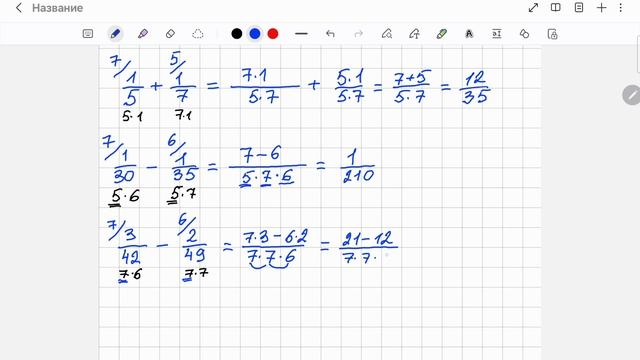 Название
7/ 1/5 + 5/ 1/7 = 7·1/5·7 + 5·1/5·7 = 7+5/5·7 = 12/35
5·1 7·1
7/ 1/30 − 6/ 1/35 = 7−6/5·7·6 = 1/210
5·6 5·7
7/ 3/42 − 6/ 2/49 = 7·3−6·2/7·7·6 = 21−12/7·7·
7·6 7·7